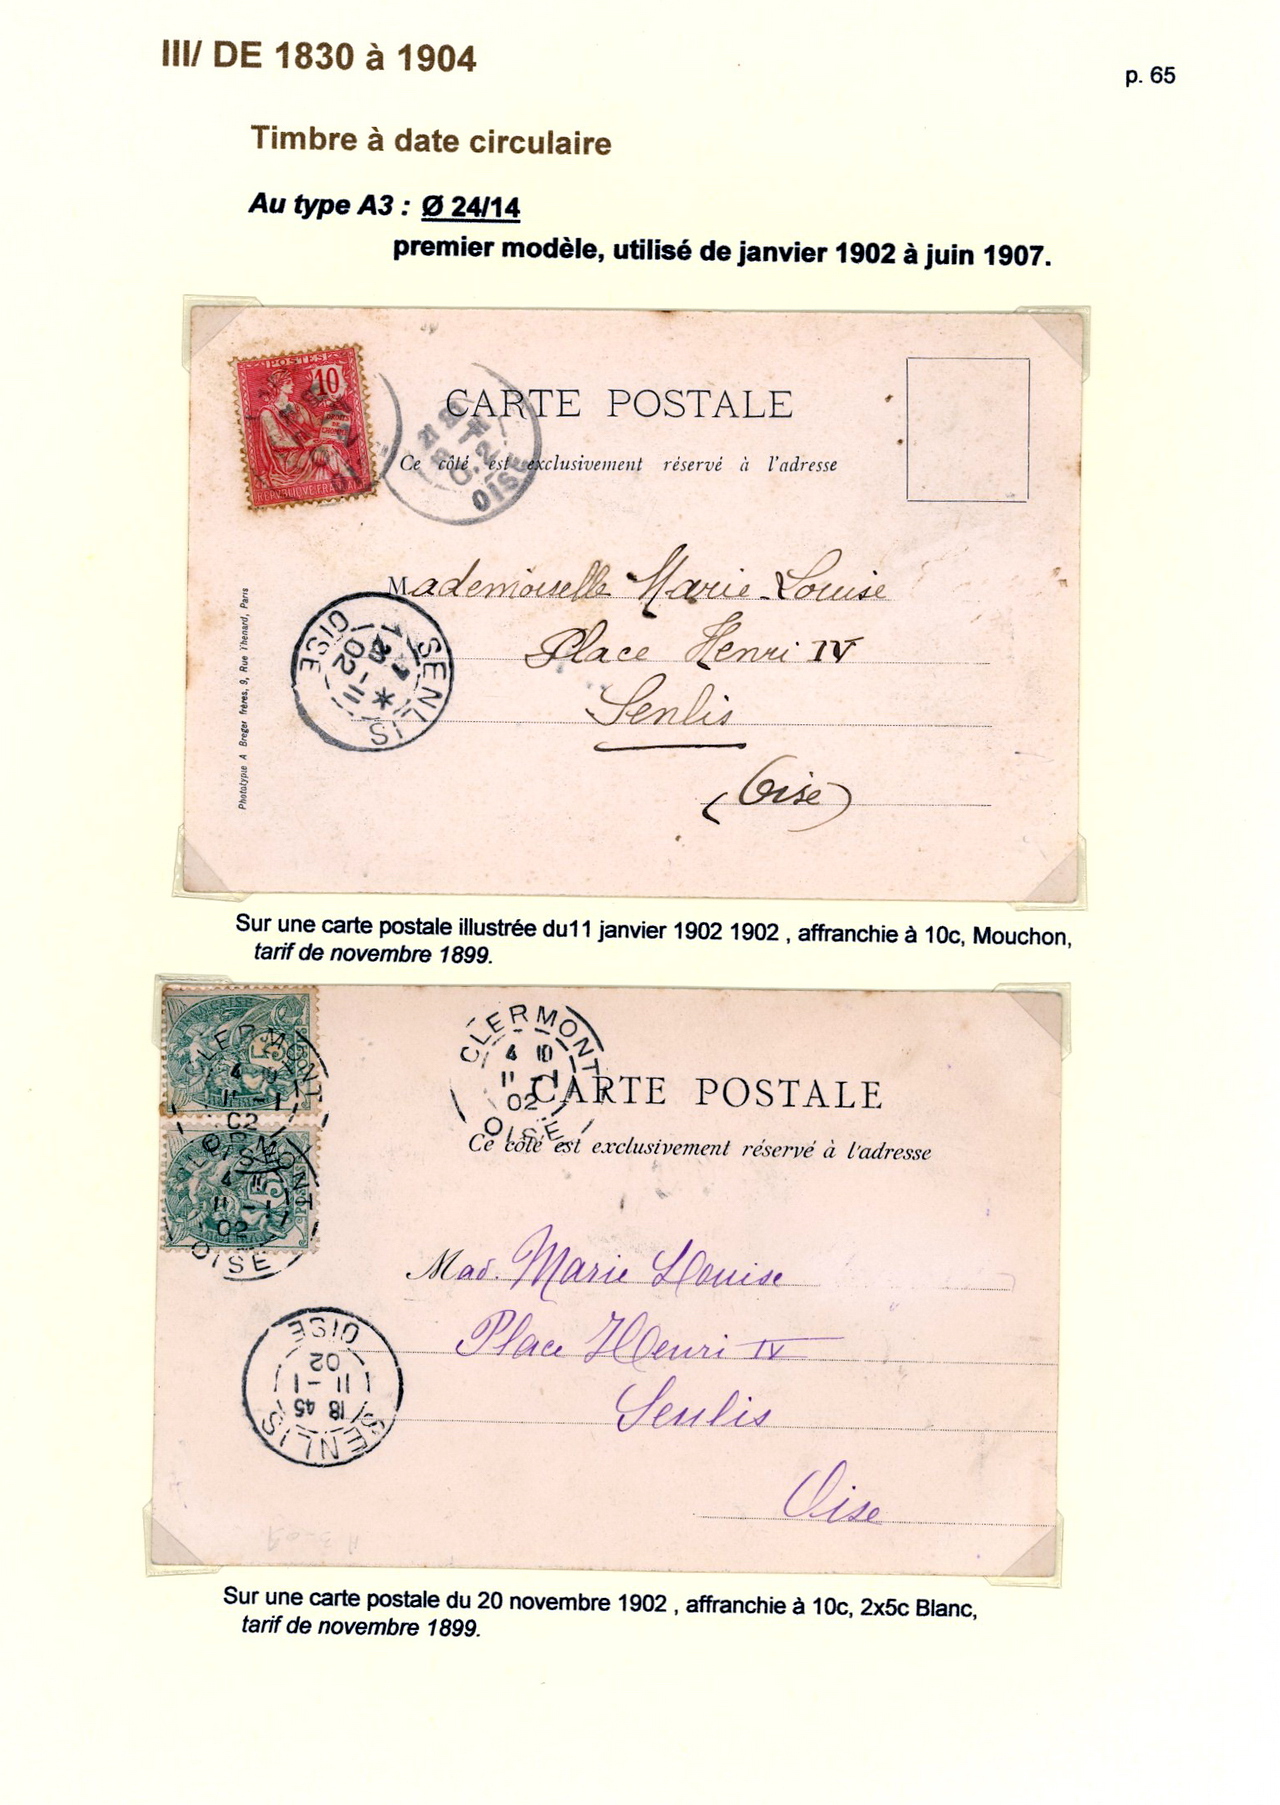 III/ DE 1830 à 1904
p. 65
Timbre à date circulaire
Au type A3 : Ø 24/14
premier modèle, utilisé de janvier 1902 à juin 1907.
POSTES
10
REPVBLIQVE FRANÇAISE
OISE
CARTE POSTALE
Ce côté est exclusivement réservé à l'adresse
Mademoiselle Marie-Louise
Place Henri IV
Senlis
(Oise)
SENLIS
20 - 11
02
OISE
Phototypie A Breger frères, 9, Rue Thenard, Paris
Sur une carte postale illustrée du11 janvier 1902 1902 , affranchie à 10c, Mouchon,
tarif de novembre 1899.
CLERMONT
4 10
11 - 1
02
OISE
CLERMONT
4 10
11 - 1
02
OISE
CLERMONT
4 11
11 - 1
02
OISE
CARTE POSTALE
Ce côté est exclusivement réservé à l'adresse
Mad. Marie Louise
Place Henri IV
Senlis
Oise
SENLIS
18 45
11 - 1
02
OISE
Sur une carte postale du 20 novembre 1902 , affranchie à 10c, 2x5c Blanc,
tarif de novembre 1899.